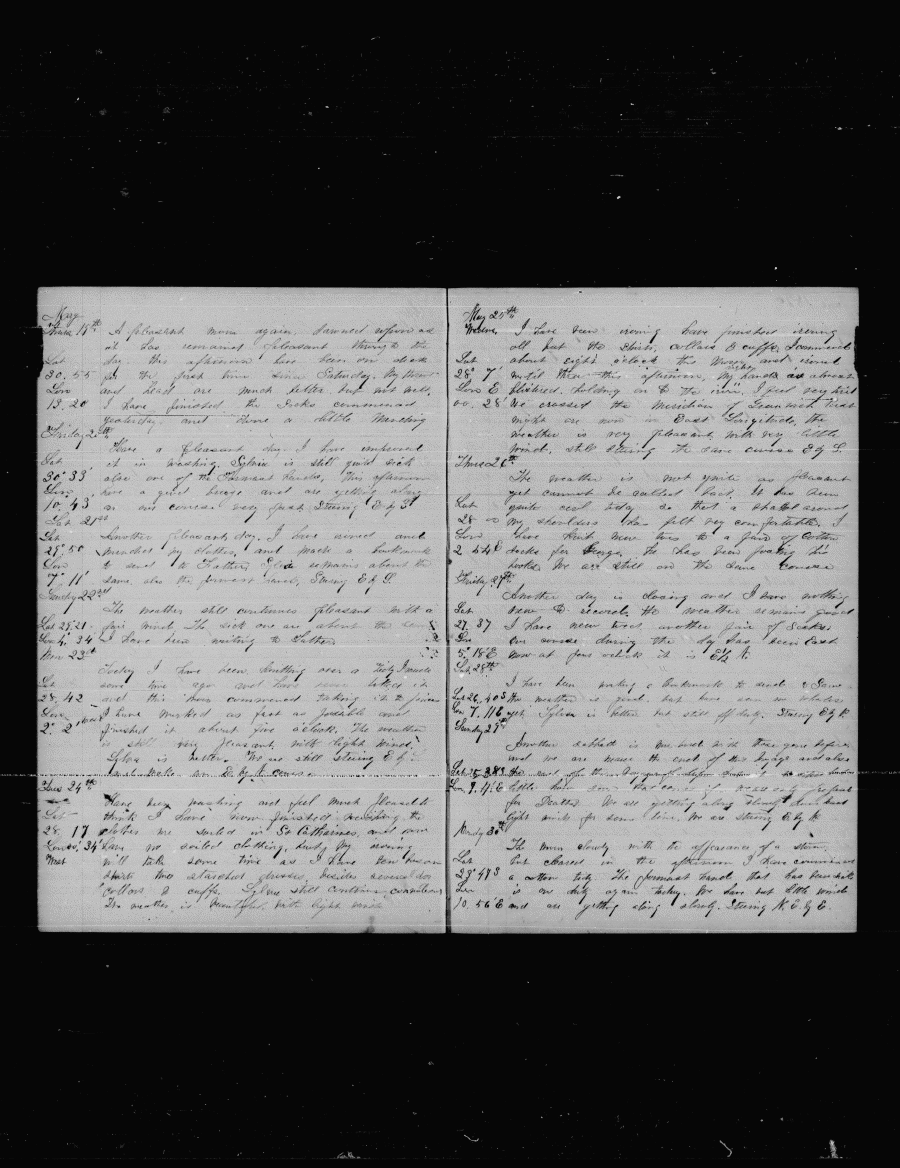 May
Thurs 19th A pleasant morn again dawned upon us
it has remained pleasant through the
Lat day this afternoon have been on deck
30. 55 for the first time since Saturday. My throat
Lon and head are much better but not well,
13. 20 I have finished the socks commenced
yesterday and done a little mending
Friday 20th
Have a pleasant day I have improved
Lat it in washing. Sylvia is still quite sick
30° 33' also one of the Foremast hands, This afternoon
Lon have a good breeze and are getting along
10. 43 on our course very fast Steering E by S
Sat 21st
Lat Another pleasant day. I have ironed and
29° 50 mended my clothes, and made a bookmark
Lon to send to Father, Sylvia remains about the
7° 11' same, also the foremast hand, Steering E by S.
Sunday 22nd
The weather still continues pleasant with a
Lat 29, 21 fair wind, The sick one are about the same
Lon 4°. 34 I have been writing to Father
Mon 23rd
Today I have been knitting over a tidy I made
Lat some time ago and have been
28. 42 and this morn commenced taking it to pieces
Lon I have worked as fast as possible and
2°. 2' West finished it about five o'clock. The weather
is still very pleasant, with light winds,
Sylvia is better. We are still steering E by S
Tues 24th
Have been washing and feel much pleased to
Lat think I have now finished washing the
28. 17 clothes we soiled in St Catharines, and now
Lon 0°. 34' have no soiled clothing, but my ironing
West will take some time as I have ten
skirts two starched dresses, besides several doz
collars & cuffs, Sylvia still continues
The weather is beautiful with light winds
May 25th
Wednes I have been ironing have finished ironing
all but the shirts, collars & cuffs, I commenced
Lat about eight o'clock this morn and ironed
28° 7' until three this afternoon, my hands are almost
Lon E blistered holding on to the iron, I feel very tired
00. 28' We crossed the Meridian of Greenwich last
night are now in East Longitude, the
weather is very pleasant with very little
wind, still steering the same course E by S.
Thurs 26th
The weather is not quite as pleasant
yet cannot be called bad. It has been
Lat quite cool today so that a shawl around
28 00 my shoulders has felt very comfortable. I
Lon have knit more toes to a pair of Cotton
2. 54 E socks for George, he has been
books. We are still on the same course
Friday 27th
Another day is closing and I have nothing
Lat new to record, the weather remains good
27. 37 I have new toed another pair of Socks
Lon Our course during the day has been East
5°. 18 E now at four o'clock it is E by N.
Sat 28th
I have been making a bookmark to send
Lat 26, 40 S the weather is good, but have seen no whales
Lon 7. 11 E yet, Sylvia is better but still off duty. Steering E by N.
Sunday 29th
Another sabbath is and with those gone before
and we are nearer the end of the voyage and also
Lon 9. 4' E little have done that comes if we are only prepared
for Death. We are getting along slowly have had
light winds for some time, We are steering E by N
Monday 30th
The morn slowly with the appearance of a storm
Lat but cleared in the afternoon I have commenced
23° 47 S a cotton tidy. The foremast hand that has been sick
Lon is on duty again today. We have but little wind
10. 56' E and are getting along slowly. Steering N. E. by E.